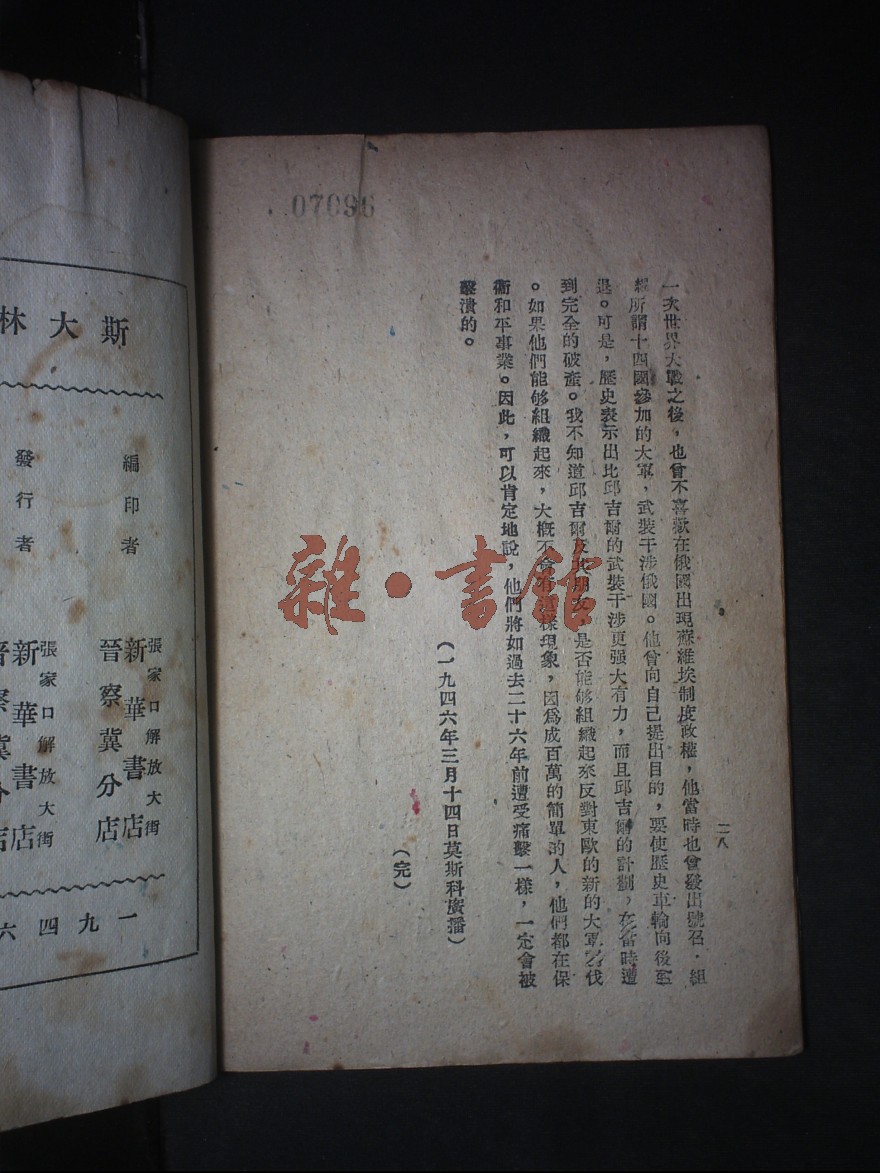 07096
一次世界大戰之後，也曾不喜歡在俄國出現蘇維埃制度政權，他當時也曾發出號召，組
織所謂十四國參加的大軍，武裝干涉俄國。他曾向自己提出目的，要使歷史車輪向後
退。可是，歷史表示出比邱吉爾的武裝干涉更强大有力，而且邱吉爾的計劃，在當時遭
到完全的破產。我不知道邱吉爾及其朋友，是否能够組織起來反對東歐的新的大軍討伐
。如果他們能够組織起來，大概不會有這樣現象，因爲成百萬的簡單的人，他們都在保
衞和平事業。因此，可以肯定地說，他們將如過去二十六年前遭受痛擊一樣，一定會被
擊潰的。
（一九四六年三月十四日莫斯科廣播）
（完）
二八
雜·書館
斯大林
編印者
新華書店
晉察冀分店
張家口解放大街
發行者
新華書店
晉察冀分店
張家口解放大街
一九四六